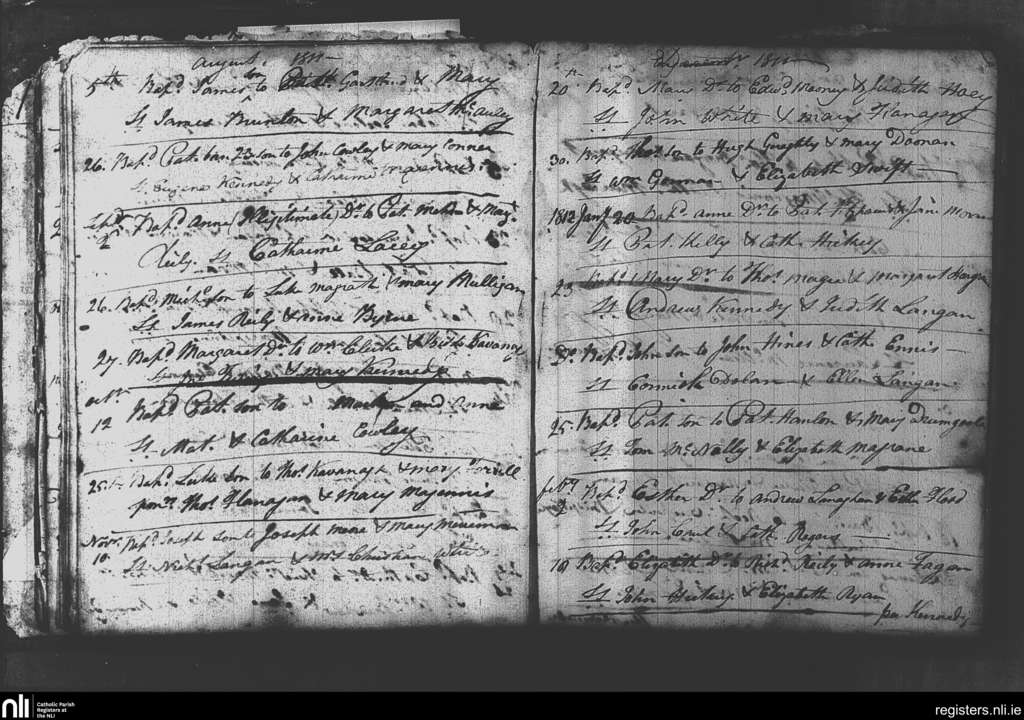 August 1811
5th Bapd. James son to Patk. Gartland & Mary
St James Brunton & Margaret McAuley
26. Bapd. Pat. son to John Cowley & Mary Conner
St. Eugene Kennedy & Catharine
Septr. Bapd. Anne (Illegitimate) Dr. to Pat. & Mary
Reily. St Catharine Lacey
26. Bapd. Michl. son to Luke Magrath & Mary Mulligan
St James Reily & Anne Byrne
27. Bapd. Margaret Dr. to Wm. & Bidd. Kavanagh
& Mary Kennedy
Octr.
12 Bapd. Pat. son to Martin and Anne
St. Mat. & Catharine Cowley
25. Bapd. Luke Son to Thos. Kavanagh & Mary
Thos. Flanagan & Mary Magennis
Novr.
10. Bapd. Joseph son to Joseph & Mary
St. Nichl. Langan & Christian
1811
20. Bapd. Mary Dr. to Edwd. Mooney & Judith Hoey
St. John White & Mary Flanagan
30. Bapd. Thos. son to Hugh Geraghty & Mary Doonan
St. Wm. Gorman & Elizabeth Swift
1812 Jany. 20 Bapd. Anne Dr. to Pat. & Jane
St. Pat. Kelly & Cath. Hickey
23 Bapd. Mary Dr. to Thos. Magee & Margaret
St. Andrew Kennedy & Judith Langan
Do. Bapd. John son to John Hines & Cath. Ennis
St. Cormick Dolan & Ellen Langan
25. Bapd. Pat. son to Pat. Hanlon & Mary Drumgoole
St. Tom McNally & Elizabeth Magrane
Feby.
9 Bapd. Esther Dr. to Andrew & Esth. Flood
St. John & Cath. Rogers
10 Bapd. Elizabeth Dr. to Richd. Reily & Anne Fagan
St. John Hickey & Elizabeth Ryan
per Kennedy
nli Catholic Parish
Registers at
the NLI
registers.nli.ie